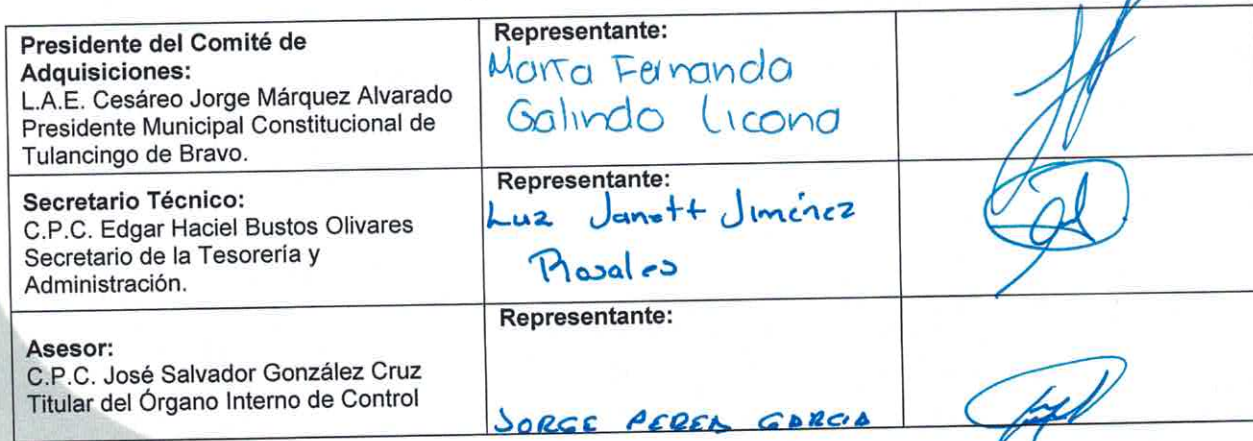 Presidente del Comité de
Adquisiciones:
L.A.E. Cesáreo Jorge Márquez Alvarado
Presidente Municipal Constitucional de
Tulancingo de Bravo.
Representante:
Marta Fernanda
Galindo Licona
Secretario Técnico:
C.P.C. Edgar Haciel Bustos Olivares
Secretario de la Tesorería y
Administración.
Representante:
Luz Janett Jiménez
Rosales
Asesor:
C.P.C. José Salvador González Cruz
Titular del Órgano Interno de Control
Representante:
JORGE PEREZ GARCIA